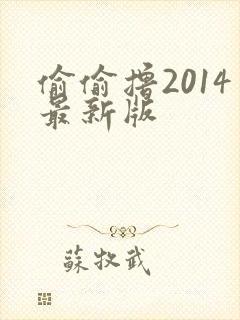 偷偷撸2014
最新版
蘇牧武